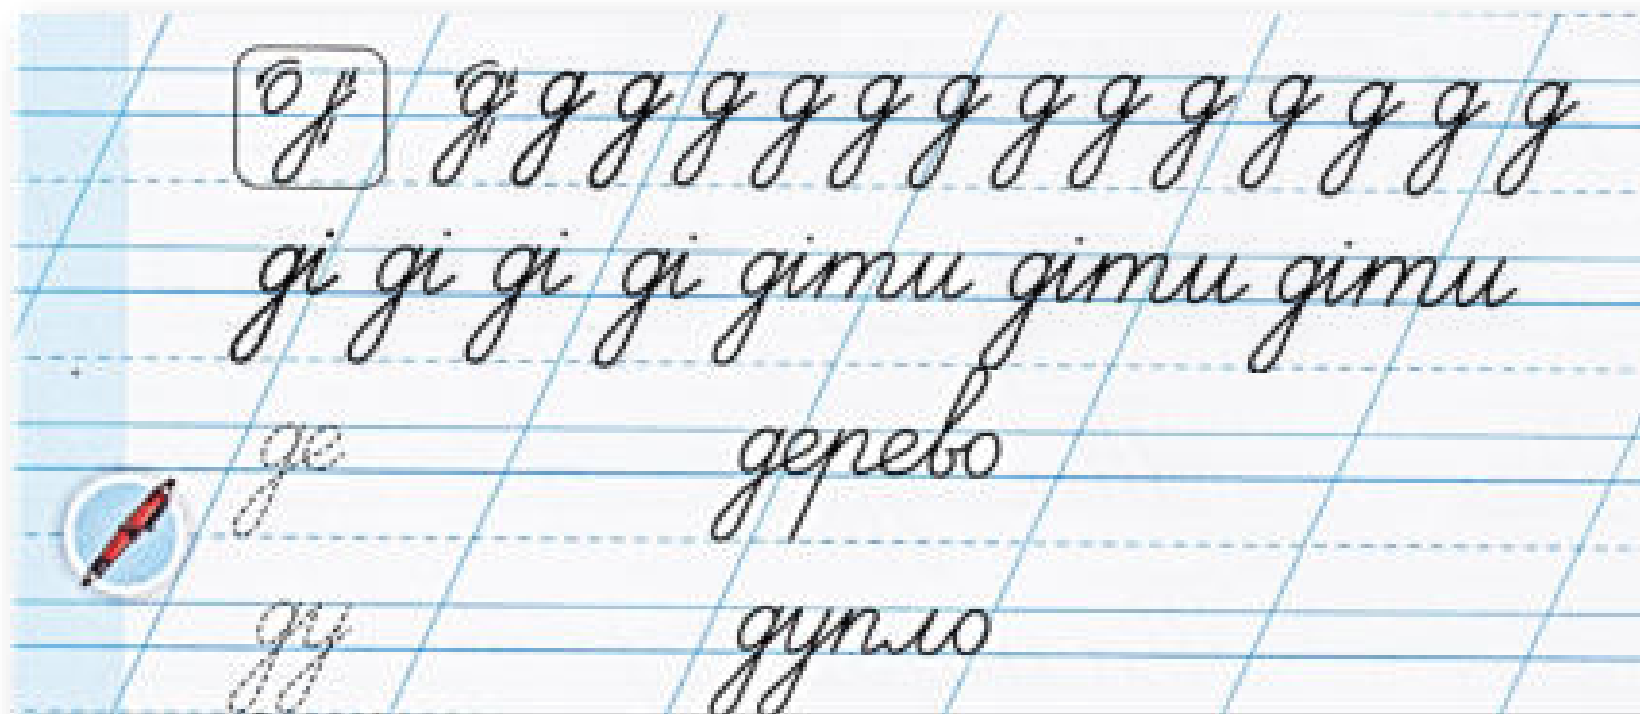 д д д д д д д д д д д д д д д
ді ді ді ді діти діти діти
де дерево
ду дупло